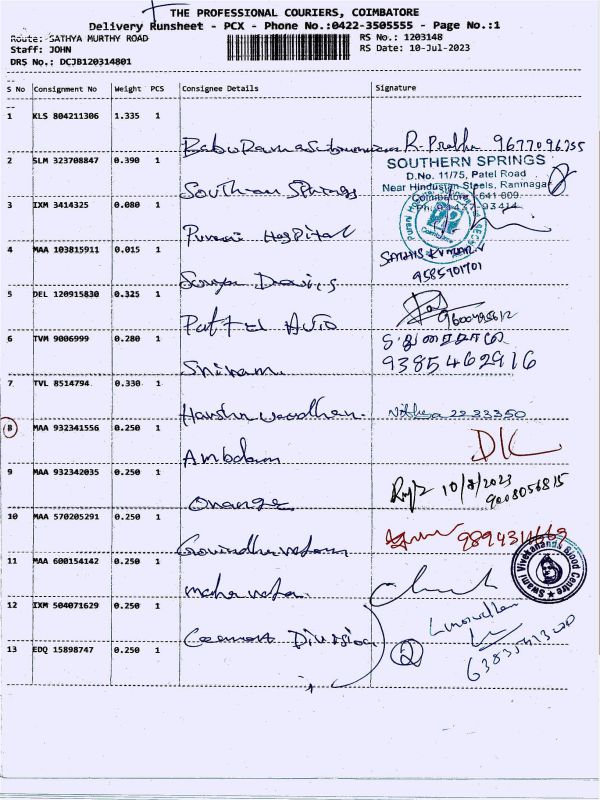 THE PROFESSIONAL COURIERS, COIMBATORE
Delivery Runsheet - PCX - Phone No.:0422-3505555 - Page No.:1
Route: SATHYA MURTHY ROAD
Staff: JOHN
DRS No.: DCJB120314801
RS No.: 1203148
RS Date: 10-Jul-2023
S No Consignment No Weight PCS Consignee Details Signature
1 KLS 804211306 1.335 1
R. Prabha 9677096755
2 SLM 323708847 0.390 1
SOUTHERN SPRINGS
D.No. 11/75, Patel Road
Near Hindustan Steels, Ramnagar
Coimbatore - 641 009.
Southern Springs
3 IXM 3414325 0.080 1
Purani Hospital
4 MAA 103815911 0.015 1
SATHIS KUMAR.V
9585701701
5 DEL 120915830 0.325 1
Pattel Auto
9600495612
6 TVM 9006999 0.280 1
9385462916
Sriram
7 TVL 8514794 0.330 1
Harshavardhan. Nithya 2233350
8 MAA 932341556 0.250 1
DK
9 MAA 932342035 0.250 1
10/7/2023
9008056815
Orange
10 MAA 570205291 0.250 1
9894311669
11 MAA 600154142 0.250 1
Swami Vivekananda Blood Centre
12 IXM 504071629 0.250 1
Division
13 EDQ 15898747 0.250 1
2